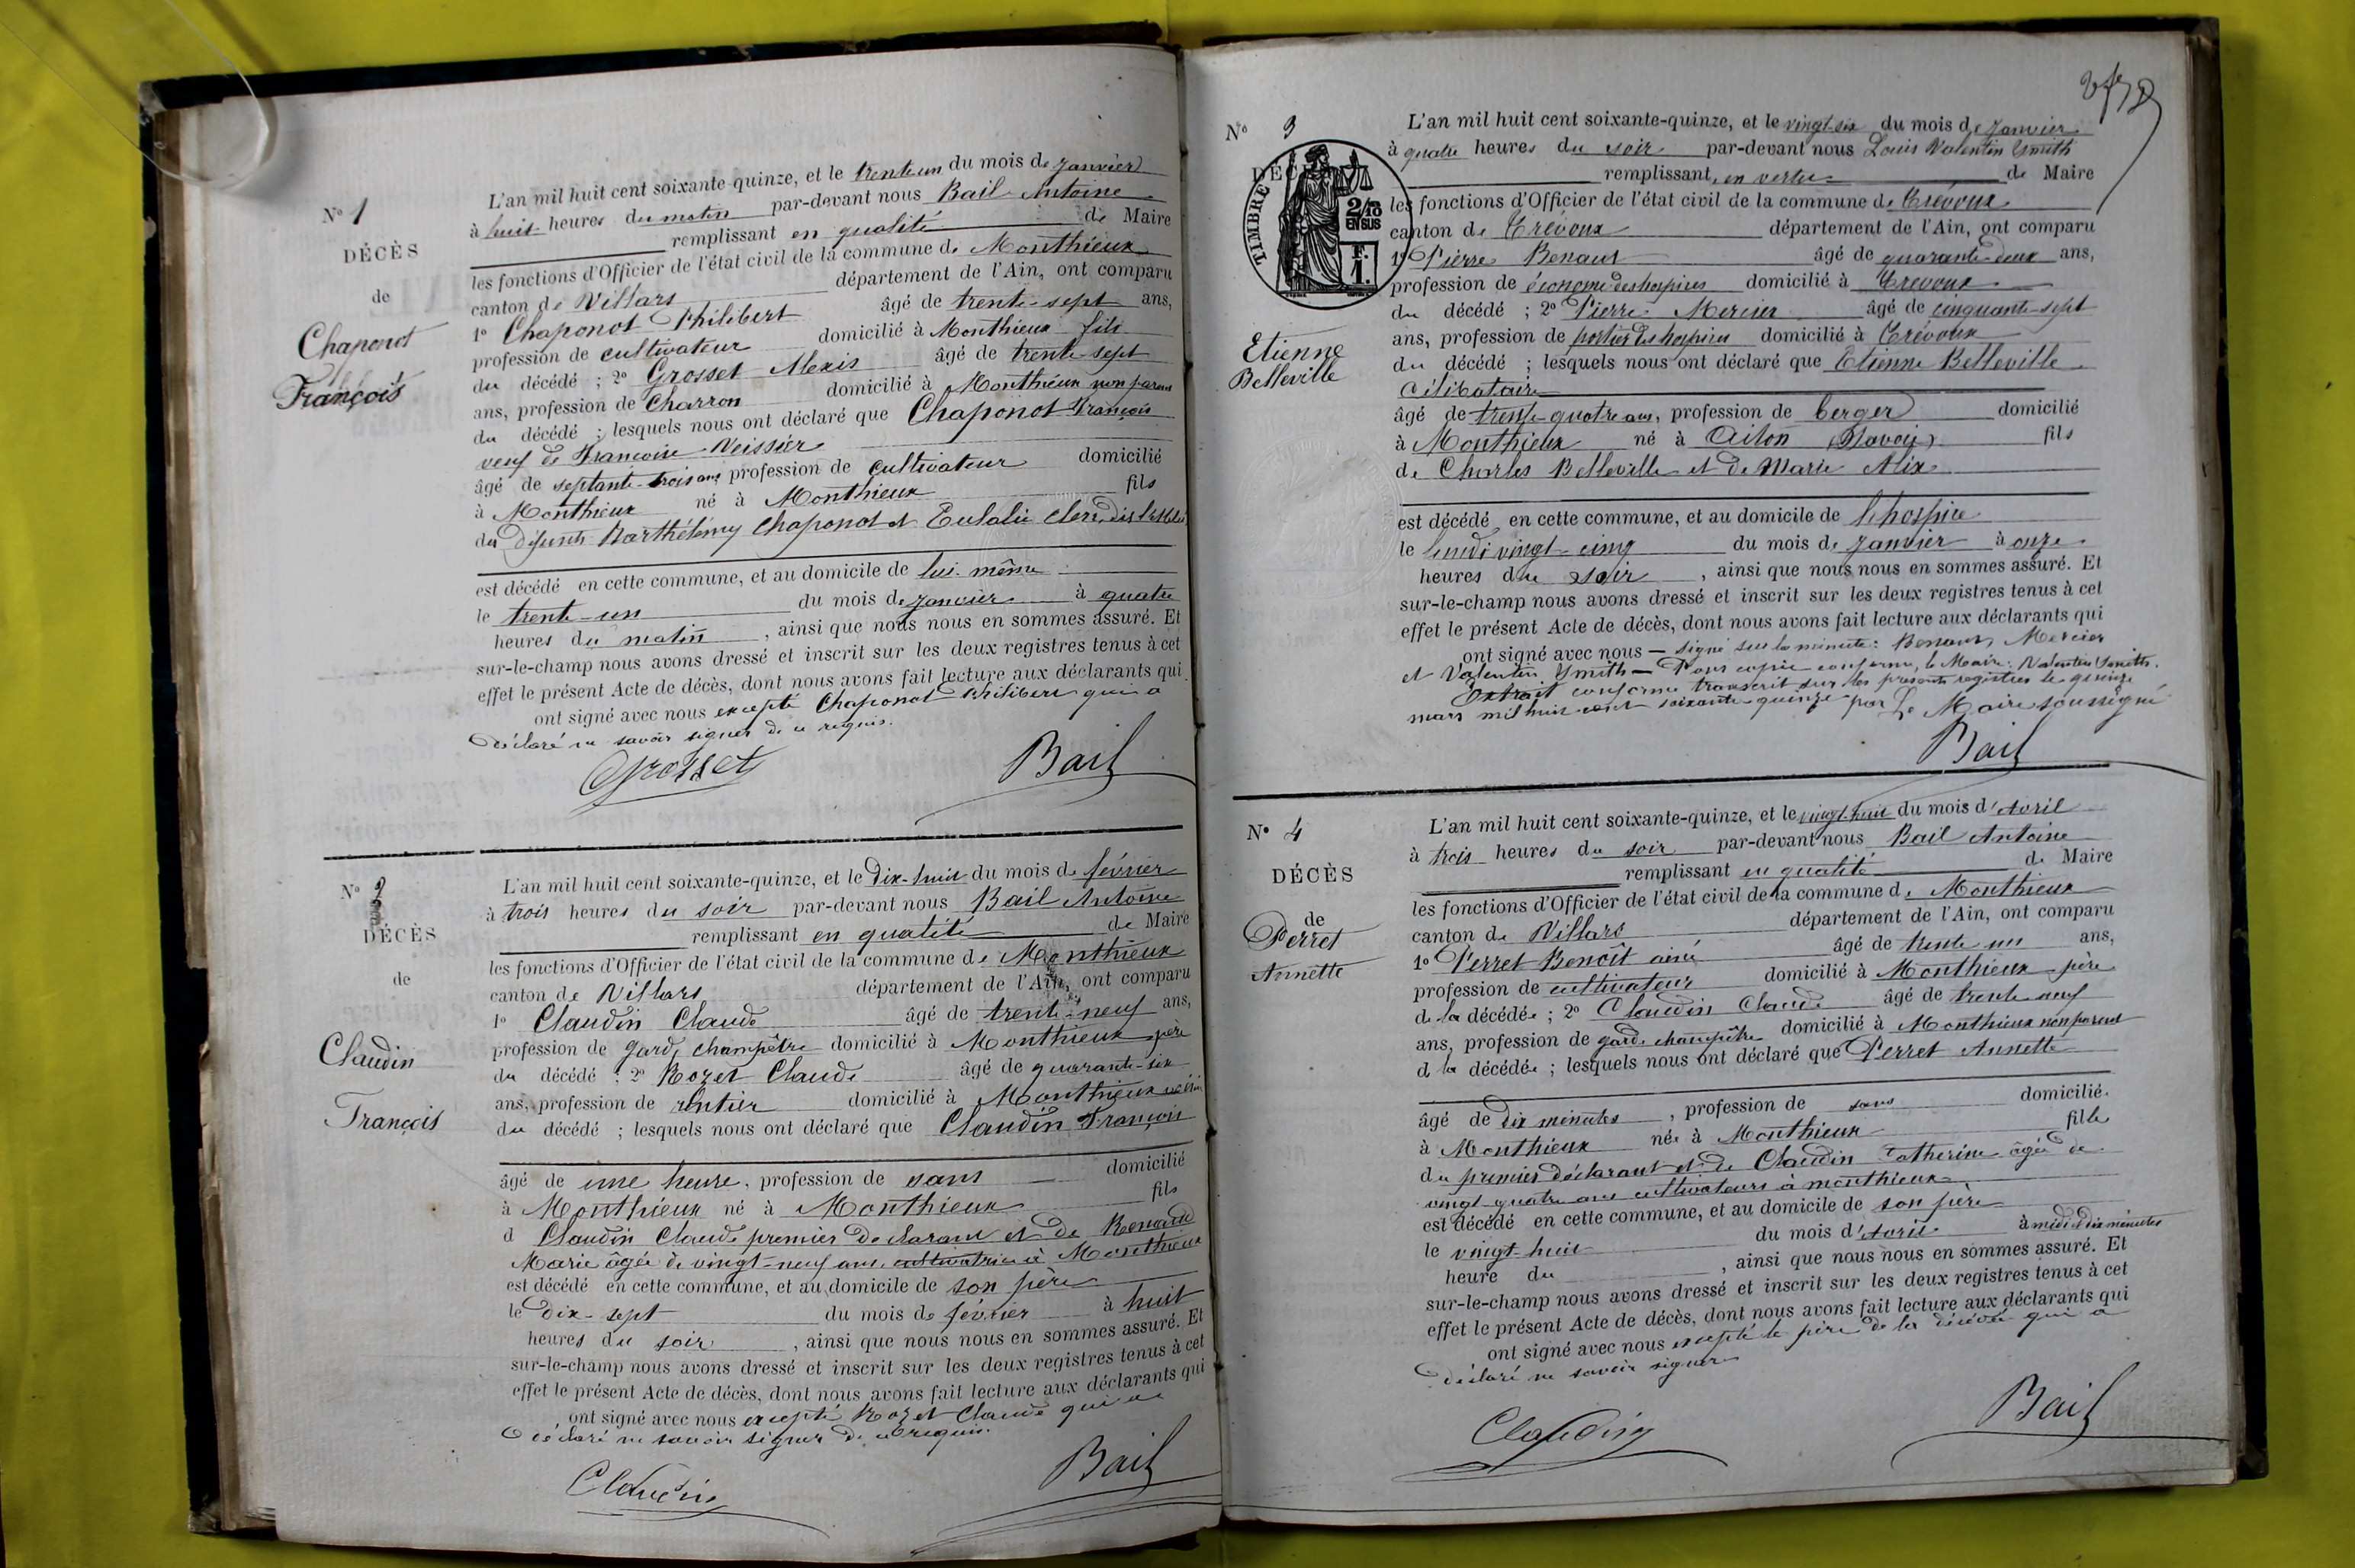 N° 1
DÉCÈS
de
Chaponot
François
L'an mil huit cent soixante-quinze, et le trente un du mois de janvier
à huit heures du matin par-devant nous Bail Antoine
remplissant en qualité de Maire
les fonctions d'Officier de l'état civil de la commune de Monthieux
canton de Villars département de l'Ain, ont comparu
1° Chaponot Philibert âgé de trente-sept ans,
profession de cultivateur domicilié à Monthieux fils
du décédé ; 2° Grosset Alexis âgé de trente-sept
ans, profession de Charron domicilié à Monthieux non parent
du décédé ; lesquels nous ont déclaré que Chaponot François
veuf de Françoise Veissier
âgé de septante-trois ans, profession de cultivateur domicilié
à Monthieux né à Monthieux fils
du défunts Barthélémy Chaponot et Eulalie Clerc
est décédé en cette commune, et au domicile de lui-même
le trente-un du mois de janvier à quatre
heures du matin, ainsi que nous nous en sommes assuré. Et
sur-le-champ nous avons dressé et inscrit sur les deux registres tenus à cet
effet le présent Acte de décès, dont nous avons fait lecture aux déclarants qui
ont signé avec nous excepté Chaponot Philibert qui a
déclaré ne savoir signer de ce requis.
Grosset Bail
N° 2
DÉCÈS
de
Claudin
François
L'an mil huit cent soixante-quinze, et le dix-huit du mois de février
à trois heures du soir par-devant nous Bail Antoine
remplissant en qualité de Maire
les fonctions d'Officier de l'état civil de la commune de Monthieux
canton de Villars département de l'Ain, ont comparu
1° Claudin Claude âgé de trente-neuf ans,
profession de garde champêtre domicilié à Monthieux père
du décédé ; 2° Rozet Claude âgé de quarante-six
ans, profession de rentier domicilié à Monthieux voisin
du décédé ; lesquels nous ont déclaré que Claudin François
âgé de une heure, profession de sans domicilié
à Monthieux né à Monthieux fils
d Claudin Claude premier déclarant et de Renaud
Marie âgée de vingt-neuf ans cultivatrice à Monthieux
est décédé en cette commune, et au domicile de son père
le dix-sept du mois de février à huit
heures du soir, ainsi que nous nous en sommes assuré. Et
sur-le-champ nous avons dressé et inscrit sur les deux registres tenus à cet
effet le présent Acte de décès, dont nous avons fait lecture aux déclarants qui
ont signé avec nous excepté Rozet Claude qui a
déclaré ne savoir signer de ce requis.
Claudin Bail
N° 3
DÉC
TIMBRE
2/10
EN SUS
F.
1.
Etienne
Belleville
L'an mil huit cent soixante-quinze, et le vingt-six du mois de janvier
à quatre heures du soir par-devant nous Louis Valentin Smith
remplissant en vertu de Maire
les fonctions d'Officier de l'état civil de la commune de Trévoux
canton de Trévoux département de l'Ain, ont comparu
1° Pierre Benaus âgé de quarante-deux ans,
profession de économe des hospices domicilié à Trévoux
du décédé ; 2° Pierre Mercier âgé de cinquante-sept
ans, profession de portier des hospices domicilié à Trévoux
du décédé ; lesquels nous ont déclaré que Etienne Belleville
célibataire
âgé de trente-quatre ans, profession de berger domicilié
à Monthieux né à Aiton (Savoie) fils
de Charles Belleville et de Marie Alix
est décédé en cette commune, et au domicile de l'hospice
le lundi vingt-cinq du mois de janvier à onze
heures du soir, ainsi que nous nous en sommes assuré. Et
sur-le-champ nous avons dressé et inscrit sur les deux registres tenus à cet
effet le présent Acte de décès, dont nous avons fait lecture aux déclarants qui
ont signé avec nous — signé sur la minute : Benaus, Mercier
et Valentin Smith — Pour copie conforme, le Maire : Valentin Smith.
Extrait conforme transcrit sur les présents registres le quinze
mars mil huit cent soixante-quinze par Le Maire soussigné
Bail
N° 4
DÉCÈS
de
Perret
Annette
L'an mil huit cent soixante-quinze, et le vingt-huit du mois d'Avril
à trois heures du soir par-devant nous Bail Antoine
remplissant en qualité de Maire
les fonctions d'Officier de l'état civil de la commune de Monthieux
canton de Villars département de l'Ain, ont comparu
1° Perret Benoît aîné âgé de trente un ans,
profession de cultivateur domicilié à Monthieux père
d la décédée ; 2° Claudin Claude âgé de trente neuf
ans, profession de garde champêtre domicilié à Monthieux non parent
d la décédée ; lesquels nous ont déclaré que Perret Annette
âgé de dix minutes, profession de sans domicilié.
à Monthieux née à Monthieux fille
du premier déclarant et de Claudin Catherine âgée de
vingt quatre ans cultivateurs à monthieux
est décédé en cette commune, et au domicile de son père
le vingt-huit du mois d'Avril à midi dix minutes
heure du , ainsi que nous nous en sommes assuré. Et
sur-le-champ nous avons dressé et inscrit sur les deux registres tenus à cet
effet le présent Acte de décès, dont nous avons fait lecture aux déclarants qui
ont signé avec nous excepté le père de la décédée qui a
déclaré ne savoir signer
Claudin Bail